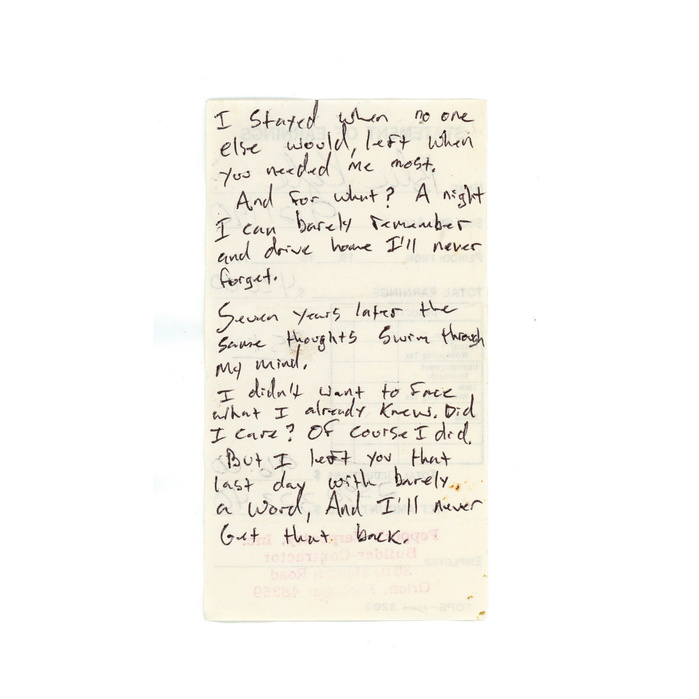 I stayed when no one
else would, left when
you needed me most.
And for what? A night
I can barely remember
and drive home I'll never
forget.
Seven years later the
same thoughts swim through
my mind.
I didn't want to face
what I already knew. Did
I care? Of course I did.
But I left you that
last day with barely
a word, And I'll never
Get that back.
STATEMENT OF EARNINGS
TOTAL EARNINGS
Builder-Contractor
Road
Orion, Michigan 48359
EMPLOYER
TOPS